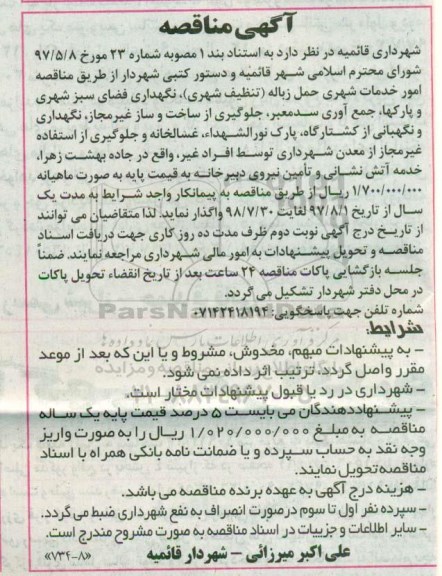 آگهی مناقصه
شهرداری قائمیه در نظر دارد به استناد بند ۱ مصوبه شماره ۲۳ مورخ ۹۷/۵/۸
شورای محترم اسلامی شهر قائمیه و دستور کتبی شهردار از طریق مناقصه
امور خدمات شهری حمل زباله (تنظیف شهری)، نگهداری فضای سبز شهری
و پارکها، جمع آوری سدمعبر، جلوگیری از ساخت و ساز غیرمجاز، نگهداری
و نگهبانی از کشتارگاه، پارک نورالشهداء، غسالخانه و جلوگیری از استفاده
غیرمجاز از معدن شهرداری توسط افراد غیر، واقع در جاده بهشت زهرا،
خدمه آتش نشانی و تأمین نیروی دبیرخانه به قیمت پایه به صورت ماهیانه
۱/۷۰۰/۰۰۰/۰۰۰ ریال از طریق مناقصه به پیمانکار واجد شرایط به مدت یک
سال از تاریخ ۹۷/۸/۱ لغایت ۹۸/۷/۳۰ واگذار نماید. لذا متقاضیان می توانند
از تاریخ درج آگهی نوبت دوم ظرف مدت ده روز کاری جهت دریافت اسناد
مناقصه و تحویل پیشنهادات به امور مالی شهرداری مراجعه نمایند. ضمناً
جلسه بازگشایی پاکات مناقصه ۲۴ ساعت بعد از تاریخ انقضاء تحویل پاکات
در محل دفتر شهردار تشکیل می گردد.
شماره تلفن جهت پاسخگویی: ۰۷۱۴۲۴۱۸۱۹۴
شرایط:
- به پیشنهادات مبهم، مخدوش، مشروط و یا این که بعد از موعد
مقرر واصل گردد، ترتیب اثر داده نمی شود.
- شهرداری در رد یا قبول پیشنهادات مختار است.
- پیشنهاددهندگان می بایست ۵ درصد قیمت پایه یک ساله
مناقصه به مبلغ ۱/۰۲۰/۰۰۰/۰۰۰ ریال را به صورت واریز
وجه نقد به حساب سپرده و یا ضمانت نامه بانکی همراه با اسناد
مناقصه تحویل نمایند.
- هزینه درج آگهی به عهده برنده مناقصه می باشد.
- سپرده نفر اول تا سوم در صورت انصراف به نفع شهرداری ضبط می گردد.
- سایر اطلاعات و جزییات در اسناد مناقصه به صورت مشروح مندرج است.
علی اکبر میرزائی - شهردار قائمیه
«۷۳۴-۸»